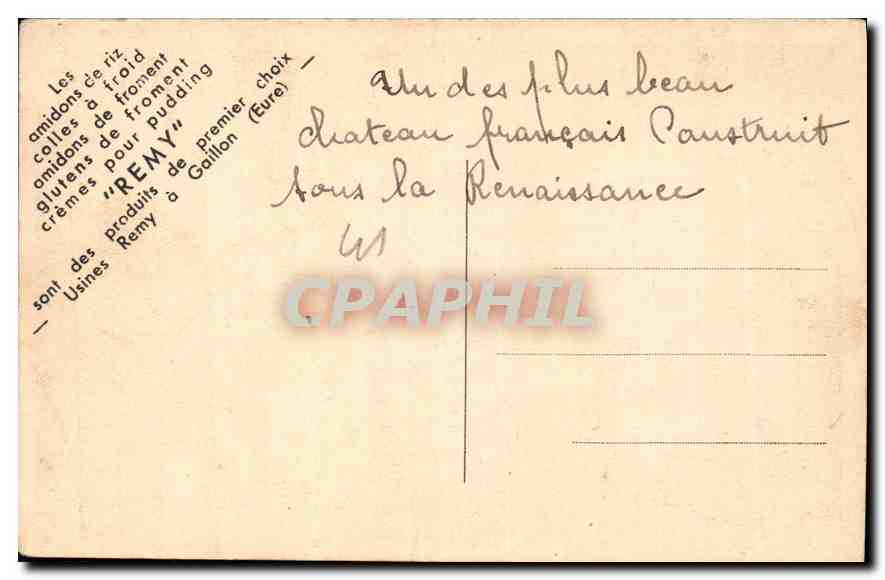 Les
amidons de riz
colles à froid
amidons de froment
glutens de froment
crèmes pour pudding
"REMY"
sont des produits de premier choix
— Usines Remy à Gaillon (Eure) —
Un des plus beau
chateau français Construit
sous la Renaissance
41
CPAPHIL